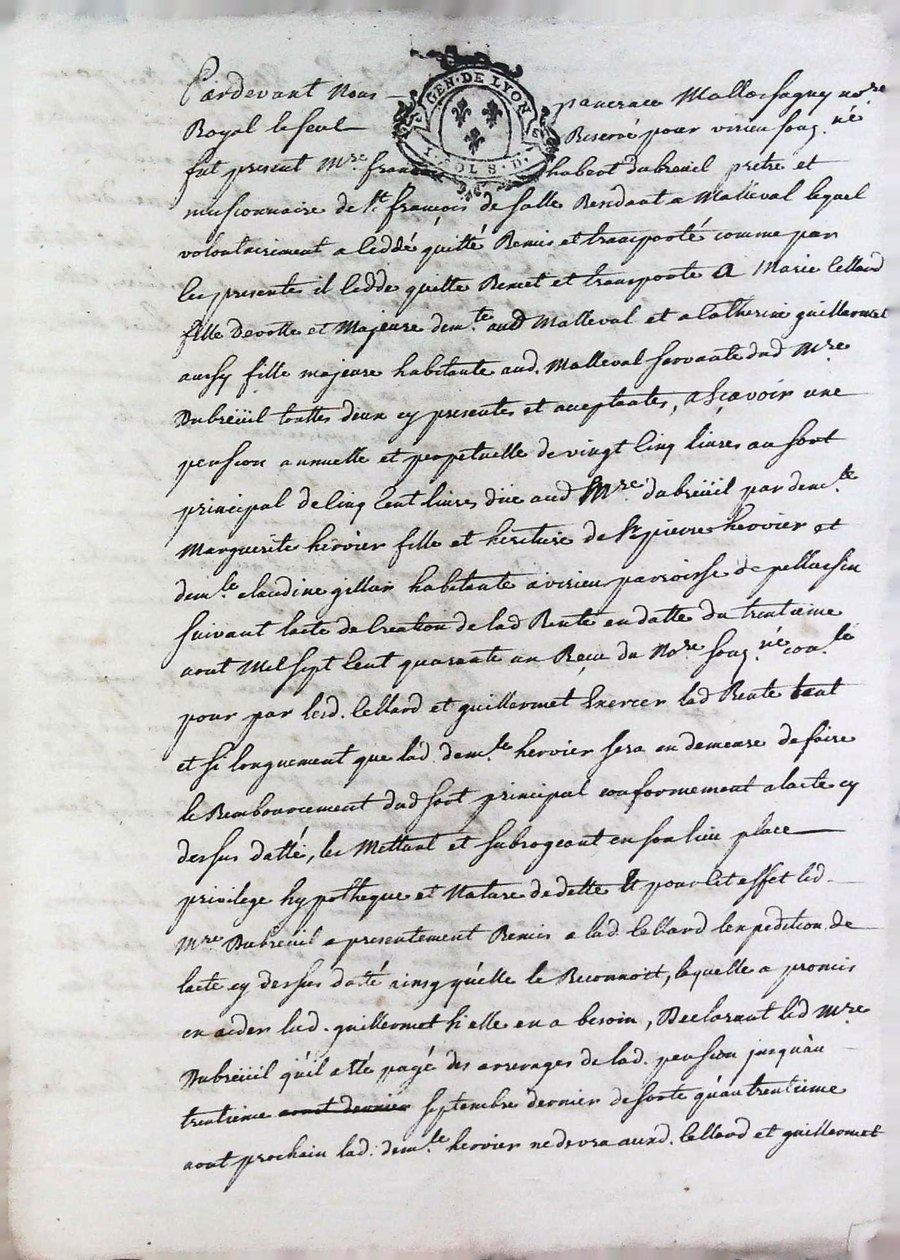 Pardevant Nous pancrace Mallassagny no.re
GEN. DE LYON
Royal le seul Reservé pour virieu soug.né
SOLS. D.
fut present Mre. franc habert dubreuil pretre et
missionnaire de St. francois de salle Rendant a Malleval lequel
volontairement a ceddé quitté Remis et transporté comme par
les presentes il cedde quitte Remet et transporte a Marie Cellard
fille Devotte et Majeure dem.te aud Malleval et a Catherine guillermet
aussy fille majeure habitante aud. Malleval servante dud Mre
Dubreüil touttes deux cy presentes et acceptantes, a sçavoir une
pension annuelle et perpetuelle de vingt cinq livres au sort
principal de cinq cent livres düe aud Mre. dubreüil par dem.lle
Marguerite hervier fille et heritiere de Sr. pierre hervier et
dem.lle claudine gillier habitante a virieu parroisse de pellussin
suivant lacte de Creation de lad Rente en datte du trentieme
aout Mil sept cent quarante un Recu du No.re soug.né con.lé
pour par lesd. Cellard et guillermet Exercer lad Rente tant
et si longuement que lad. dem.lle hervier sera en demeure de faire
le Remboursement dud sort principal conformement a lacte cy
dessus datté, les Mettant et subrogeant en son lieu place
privilege hypotheque et Nature de dette Et pour cet effet led.
Mre. Dubreuil a presentement Remis a lad Cellard lexpedition de
lacte cy dessus daté ainsy qu'elle le Reconnoit, laquelle a promis
en aider lad. guillermet si elle en a besoin, Declarant led Mre
Dubreüil quil a eté payé des arrerages de lad. pension jusqu'au
trentieme aout dernier septembre dernier de sorte qu'au trentieme
aout prochain lad. dem.lle hervier ne devra auxd. Cellard et guillermet